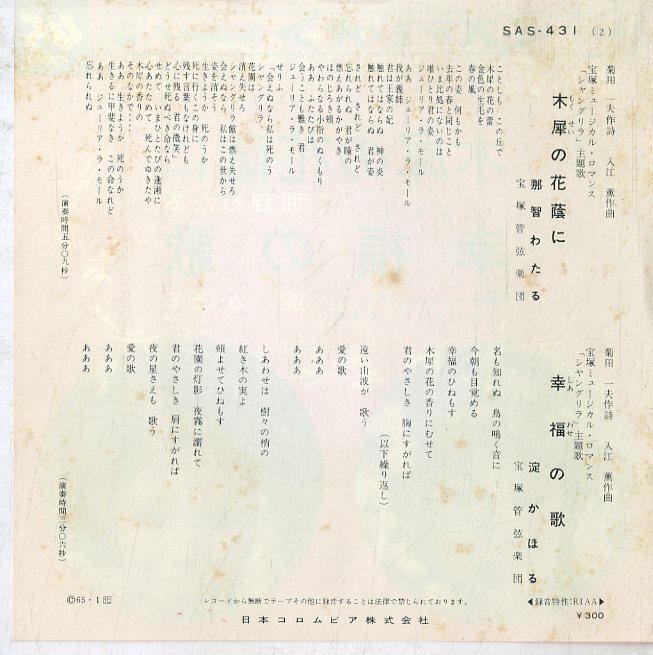 SAS-431 (2)
菊田一夫作詩 入江薫作曲
宝塚ミュージカル・ロマンス
「シャングリラ」主題歌
木犀の花蔭に
もくせい
那智わたる
宝塚管弦楽団
ことしも この丘で
木犀の花の蕾
金色の生毛を
春の風
この姿 何もかも
去年の春と同じこと
いまは此処にないのは
唯ひとり君の姿
ジューリア・ラ・モール
ああ ジューリア・ラ・モール
我が義姉
君は王家の妃
触れてならぬ 神の炎
触れてはならぬ 君が姿
されど されど されど
忘れられぬ 君が瞳の
燃えあるかがやき
やわらかなる小指のぬくもり
ほのじろき頬
ああ ふたたびは
会うことも難き君
ジューリア・ラ・モール
せりふ
「会えぬなら 私は死のう
シャングリラ
花園は
消え失せろ
シャングリラ館は燃え失せろ
会えぬなら 私はこの世から
姿を消そう」
生きようか 死のうか
死に行くこの身に
残す言葉もなけれども
心に残る 君の微笑
どうせ死ぬべき命なら
せめて いまひとたびの逢瀬に
心あたためて 死んでゆきたや
木犀の香りの
そのなかで……
ああ 生きようか 死のうか
生きるに甲斐なき この命なれど
ああ ジューリア・ラ・モール
忘れられぬ
(演奏時間五分〇九秒)
菊田一夫作詩 入江薫作曲
宝塚ミュージカル・ロマンス
「シャングリラ」主題歌
幸福の歌
しあわせ
淀かほる
宝塚管弦楽団
名も知れぬ 鳥の鳴く音に
今朝も目覚める
幸福のひねもす
木犀の花の香りにむせて
君のやさしき 胸にすがれば
(以下繰り返し)
遠い山波が 歌う
愛の歌
あああ
あああ
しあわせは 樹々の梢の
紅き木の実よ
頬よせてひねもす
花園の灯影 夜霧に濡れて
君のやさしき 肩にすがれば
夜の星さえも 歌う
愛の歌
あああ
あああ
(演奏時間三分〇六秒)
Ⓒ65・1
レコードから無断でテープその他に録音することは法律で禁じられております。
◀録音特性:RIAA▶
¥300
日本コロムビア株式会社